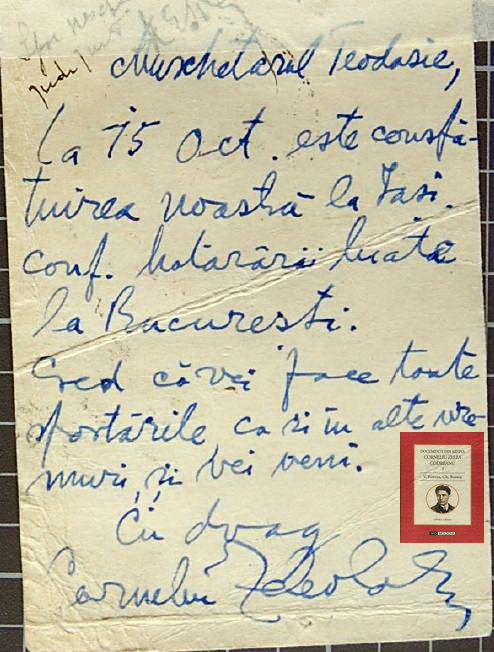 Muschetarul Teodosie,
La 15 Oct. este consfă-
tuirea noastră la Iasi.
conf. hotarârii luate
la Bucuresti.
Cred că vei face toate
sfortările ca si în alte vre-
muri, și vei veni.
Cu drag
Corneliu
DOCUMENTE DIN ARHIVA
CORNELIU ZELEA
CODREANU